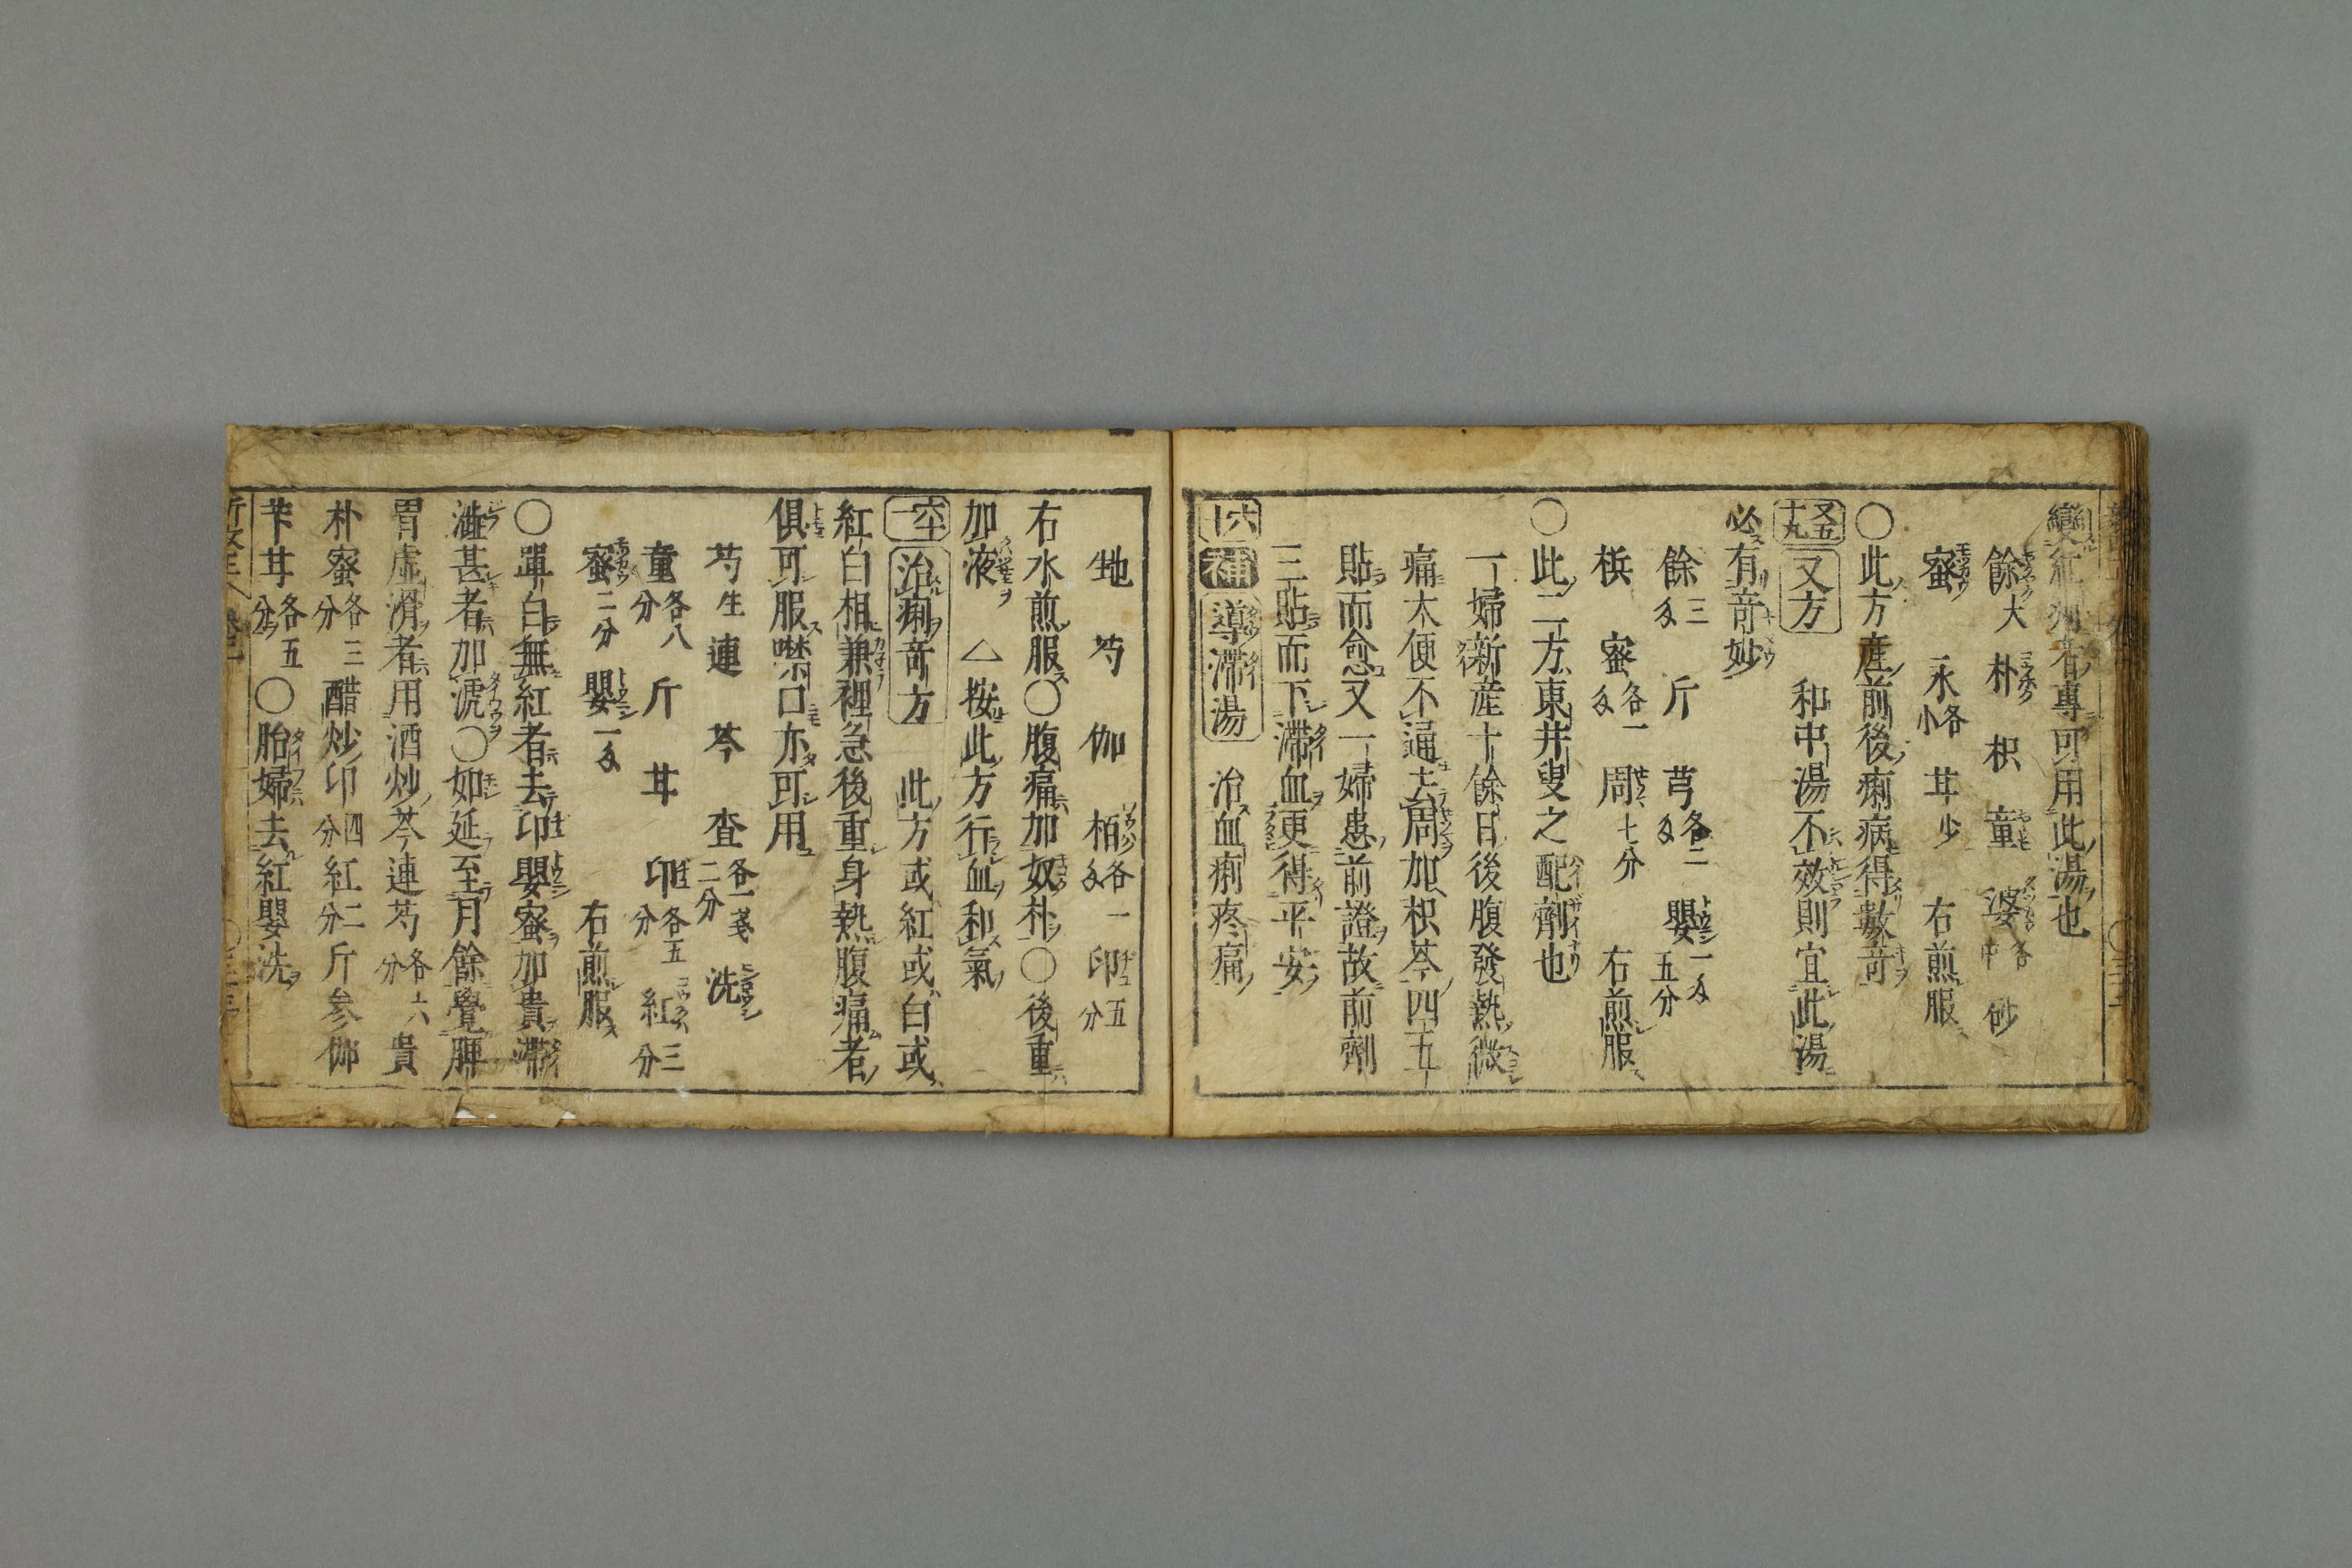 變紅痢者專可用此湯也
餘大 朴 枳 童 婆各中 砂
蜜 永各小 苷少 右煎服
〇此方産前後痢病得數奇
又五十九 又方 和中湯不效則宜此湯
必有奇妙
餘三匁 斤 芎各二匁 嬰一匁五分
梹 蜜各一匁 周七分 右煎服
〇此二方東井叟之配劑也
一婦新産十餘日後腹發熱微
痛大便不通去周加枳芩四五
貼而愈又一婦患前證故前劑
三貼而下滯血更得平安
六十 補 導滯湯 治血痢疼痛
地 芍 伽 栢各一匁 印五分
右水煎服〇腹痛加奴朴〇後重
加液 △按此方行血和氣
六十一 治痢奇方 此方或紅或白或
紅白相兼裡急後重身熱腹痛者
俱可服噤口亦可用
芍生 連 芩 查各一戔二分 洗
童各八分 斤 苷 印各五分 紅三分
蜜二分 嬰一匁 右煎服
〇單白無紅者去印嬰蜜加貴滯
澁甚者加漉〇如延至月餘覺脾
胃虛滑者用酒炒芩連芍各六分 貴
朴蜜各三分 醋炒印四分紅二分斤参伽
苄苷各五分〇胎婦去紅嬰洗